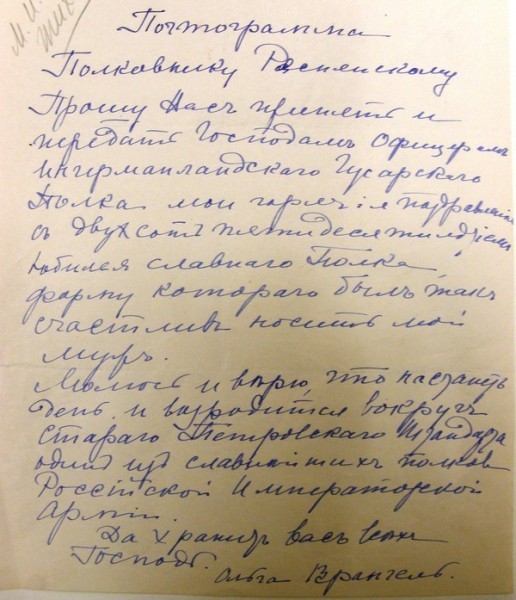 М. И.
Почтограмма
Полковнику Распенскому
Прошу Васъ принять и
передать Господамъ Офицерамъ
Ингерманландскаго Гусарскаго
Полка мои горячія поздравленія
съ двухсотъ пятидесятилѣтіемъ
юбилея славнаго Полка,
форму котораго былъ такъ
счастливъ носить мой
мужъ.
Молюсь и вѣрю, что настанетъ
день и возродится вокругъ
Стараго Петровскаго Штандарта
одинъ изъ славнѣйшихъ полковъ
Россійской Императорской
Арміи.
Да хранитъ васъ всѣхъ
Господь.
Ольга Врангель.